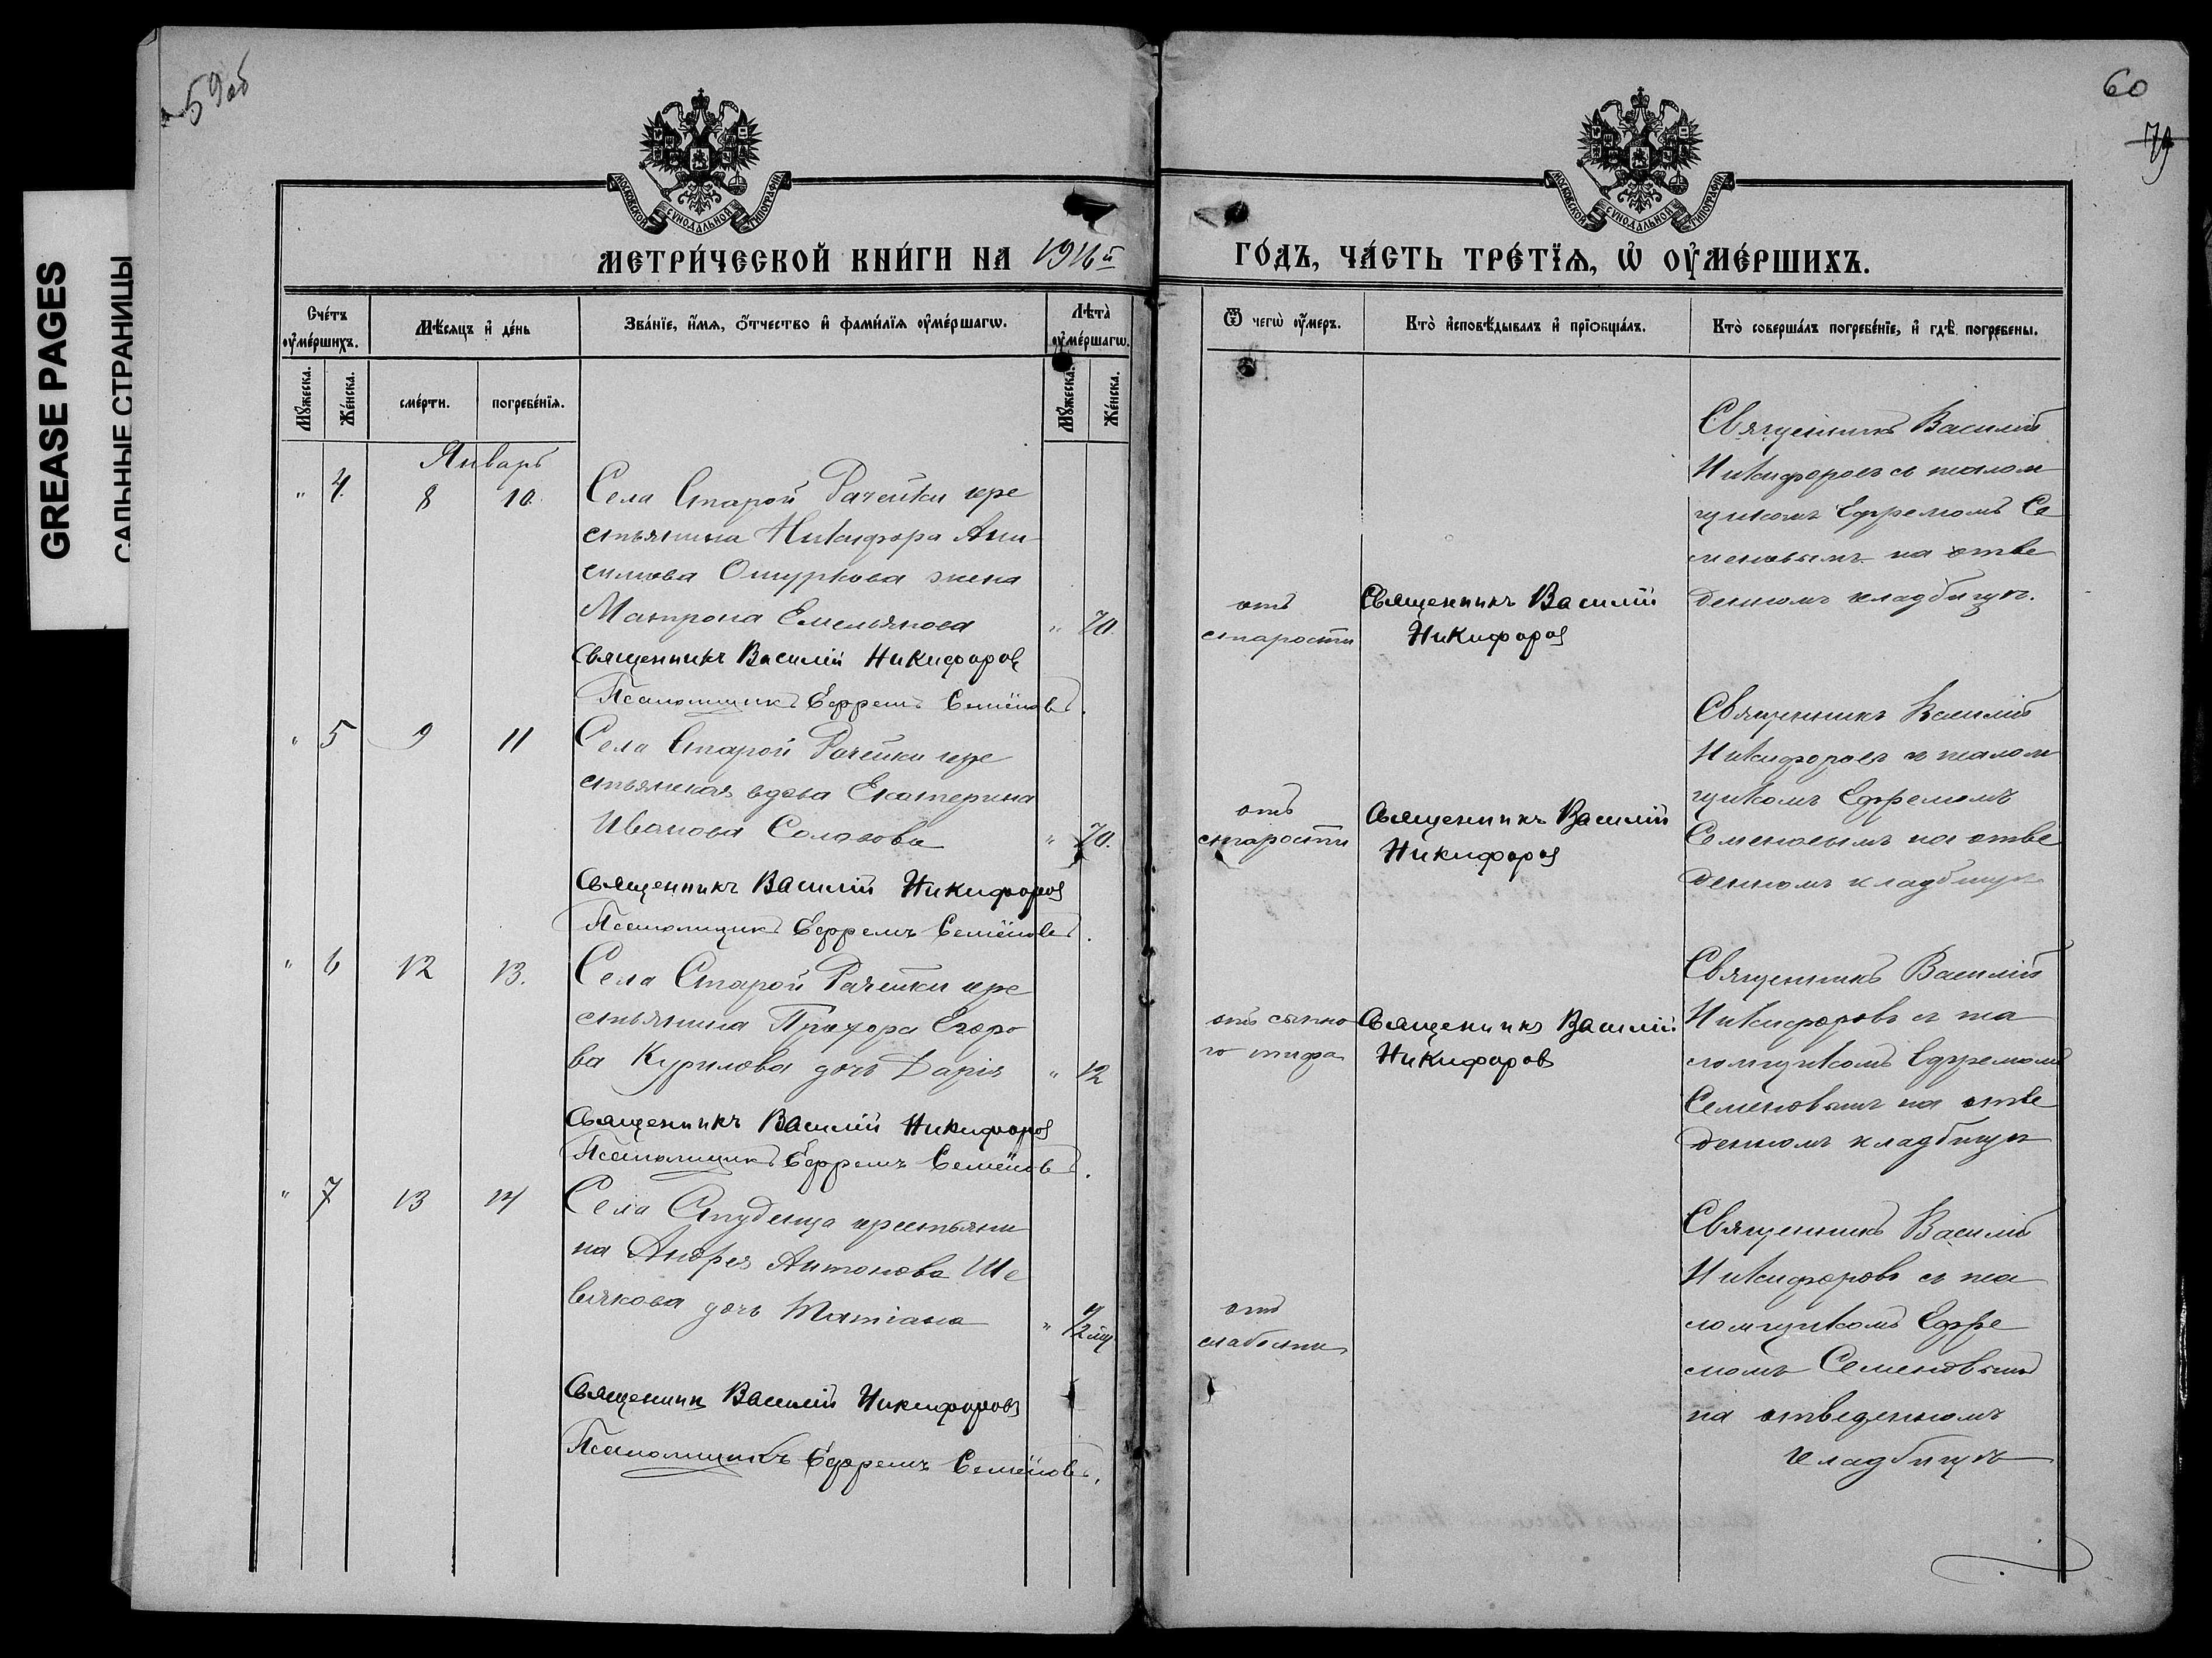 59об
60
79
GREASE PAGES
САЛЬНЫЕ СТРАНИЦЫ
МОСКОВСКОЙ СѴНОДАЛЬНОЙ ТИПОГРАФІИ
МОСКОВСКОЙ СѴНОДАЛЬНОЙ ТИПОГРАФІИ
МЕТРИ́ЧЕСКОЙ КНИ́ГИ НА 1916й
ГО́ДЪ, ЧА́СТЬ ТРЕ́ТЇѦ, Ѡ҆ ОУ҆МЕ́РШИХЪ.
Сче́тъ оу҆ме́ршихъ.
Мѣ́сяцъ и҆ де́нь
Зва́нїе, и҆́мѧ, ѻ҆́тчество и҆ фами́лїѧ оу҆ме́ршагѡ.
Лѣ́та оу҆ме́ршагѡ.
Ѿ чегѡ̀ оу҆́меръ.
Кто̀ и҆сповѣ́дывалъ и҆ прїѻбща́лъ.
Кто̀ соверша́лъ погребе́нїе, и҆ гдѣ̀ погребены.
Мꙋ́жеска.
Же́нска.
сме́рти.
погребе́нїѧ.
Мꙋ́жеска.
Же́нска.
Январь
" 4. 8 10. Села Старой Рачейки кре
стьянина Никифора Ани
симова Ошуркова жена
Матрона Емельянова " 70.
Священникъ Василій Никифоров
Псаломщикъ Ефремъ Семёновъ.
отъ
старости
Священникъ Василій
Никифоров
Священникъ Василій
Никифоровъ съ псалом
щикомъ Ефремомъ Се
меновымъ на отве
денномъ кладбищѣ.
" 5 9 11 Села Старой Рачейки кре
стьянская вдова Екатерина
Иванова Солозова " 70.
Священникъ Василій Никифоров
Псаломщикъ Ефремъ Семёновъ.
отъ
старости
Священникъ Василій
Никифоров
Священникъ Василій
Никифоровъ съ псалом
щикомъ Ефремомъ
Семеновымъ на отве
денномъ кладбищѣ
" 6 12 13. Села Старой Рачейки кре
стьянина Прохора Егоро
ва Курилова дочь Дарія " 12
Священникъ Василій Никифоров
Псаломщикъ Ефремъ Семёновъ.
отъ сыпно
го тифа
Священникъ Василій
Никифоровъ
Священникъ Василій
Никифоровъ съ пса
ломщикомъ Ефремомъ
Семеновымъ на отве
денномъ кладбищѣ
" 7 13 14 Села Студенца крестьяни
на Андрея Антонова Ше
вякова дочь Татіана "
Священник Василій Никифоровъ
Псаломщикъ Ефремъ Семёновъ.
отъ
слабости
Священникъ Василій
Никифоровъ съ пса
ломщикомъ Ефре
момъ Семеновымъ
на отведенномъ
кладбищѣ